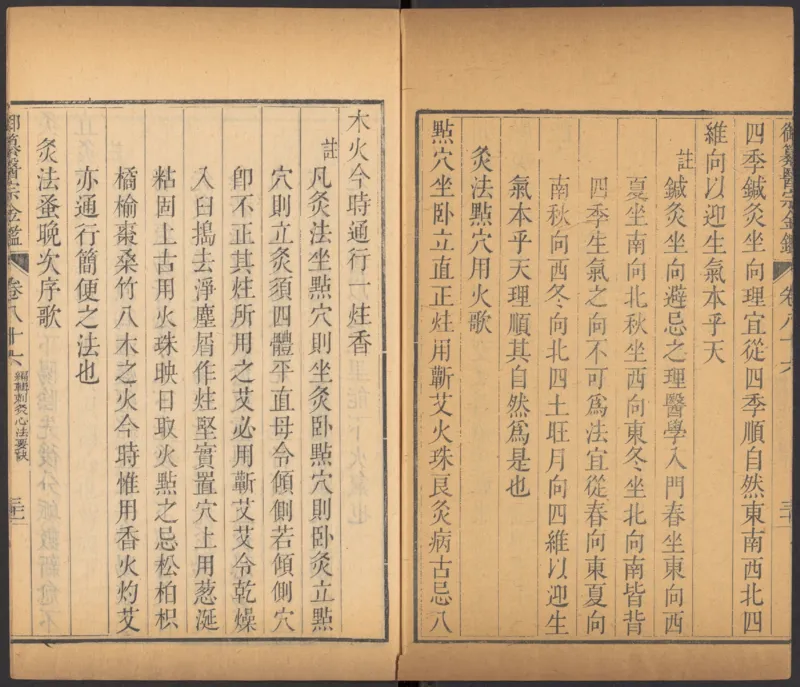 御纂醫宗金鑑 卷八十六
四季鍼灸坐向理宜從四季順自然東南西北四
維向以迎生氣本乎天
註鍼灸坐向避忌之理醫學入門春坐東向西
夏坐南向北秋坐西向東冬坐北向南皆背
四季生氣之向不可為法宜從春向東夏向
南秋向西冬向北四土旺月向四維以迎生
氣本乎天理順其自然為是也
灸法點穴用火歌
點穴坐卧立直正炷用蘄艾火珠良灸病古忌八
木火今時通行一炷香
註凡灸法坐點穴則坐灸卧點穴則卧灸立點
穴則立灸須四體平直毋令傾側若傾側穴
卽不正其炷所用之艾必用蘄艾艾令乾燥
入臼搗去淨塵屑作炷堅實置穴上用葱涎
粘固上古用火珠映日取火點之忌松柏枳
橘榆棗桑竹八木之火今時惟用香火灼艾
亦通行簡便之法也
灸法蚤晚次序歌
御纂醫宗金鑑 卷八十六 編輯刺灸心法要訣